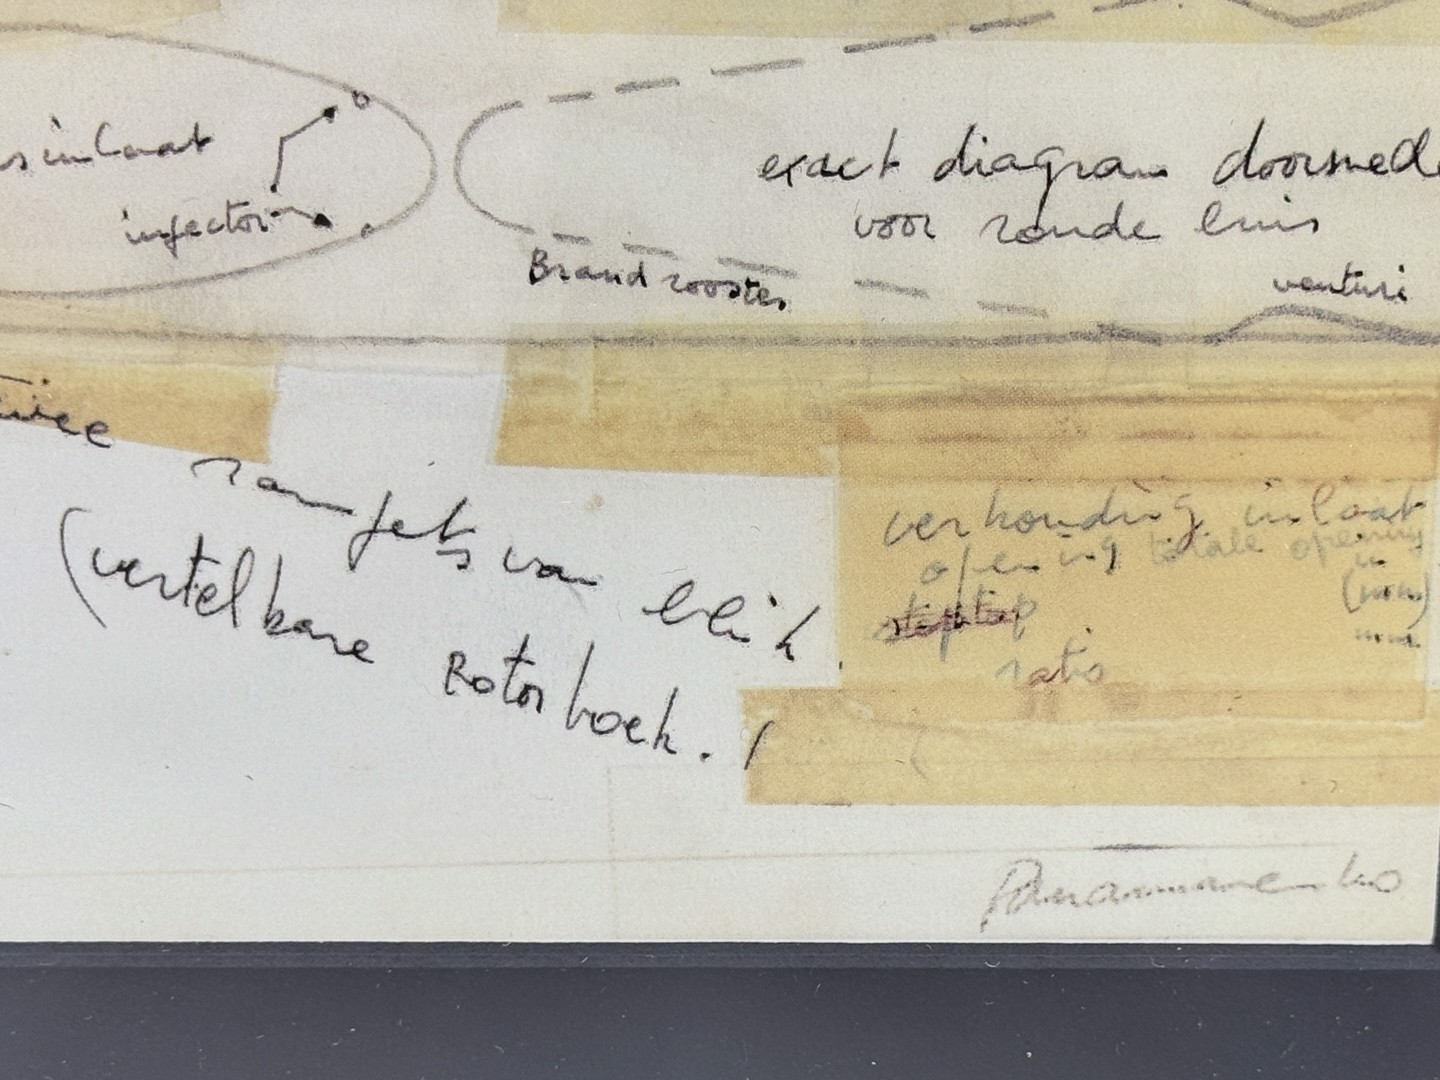 inlaat
injector
exact diagram doorsnede
voor ronde buis
Brandrooster
venturi
ramjets van blik.
(vertelbare Rotorboek.)
verhouding inlaat
opening totale opening
in
ratio
Panamarenko